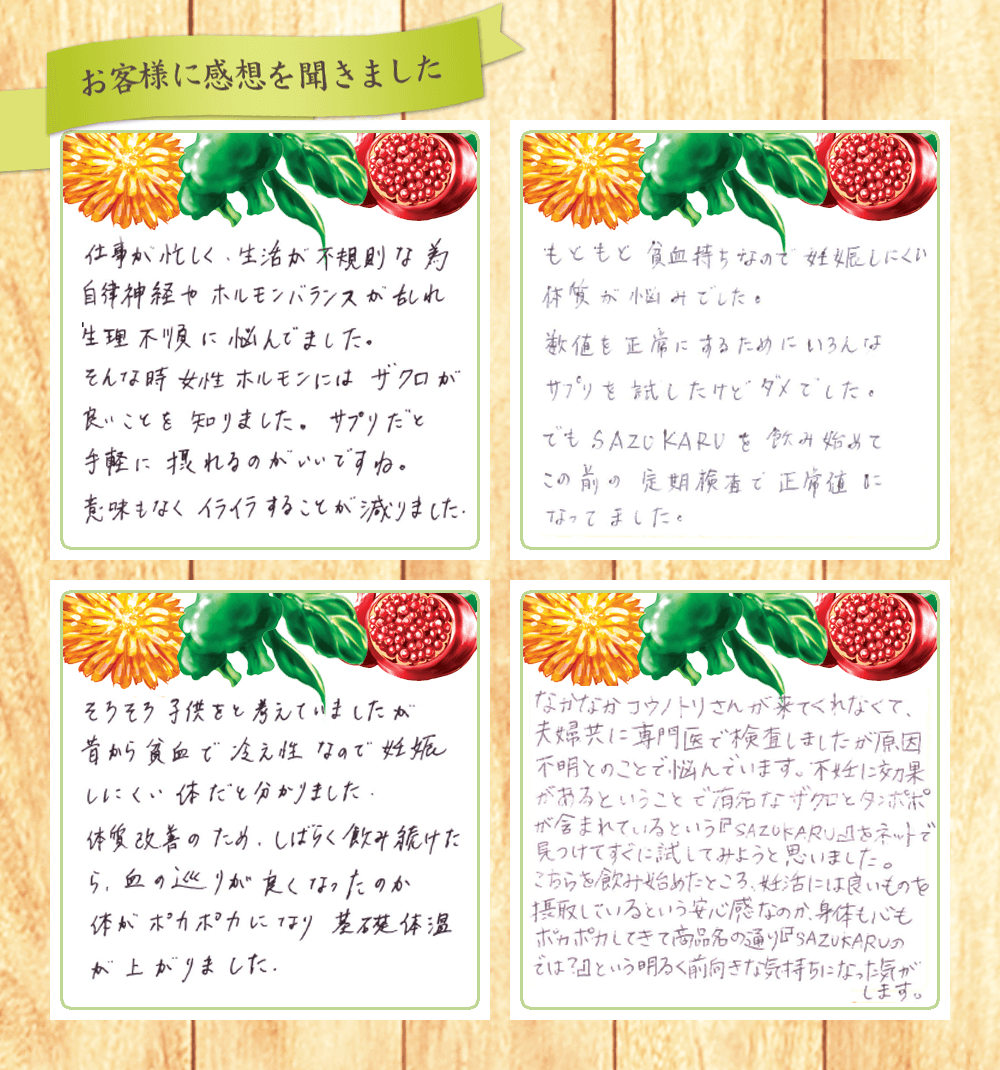 お客様に感想を聞きました
仕事が忙しく、生活が不規則な為
自律神経やホルモンバランスが乱れ
生理不順に悩んでました。
そんな時女性ホルモンにはザクロが
良いことを知りました。サプリだと
手軽に摂れるのがいいですね。
意味もなくイライラすることが減りました.
もともと貧血持ちなので妊娠しにくい
体質が悩みでした。
数値を正常にするためにいろんな
サプリを試したけどダメでした。
でもSAZUKARUを飲み始めて
この前の定期検査で正常値に
なってました。
そろそろ子供をと考えていましたが
昔から貧血で冷え性なので妊娠
しにくい体だと分かりました.
体質改善のため、しばらく飲み続けた
ら、血の巡りが良くなったのか
体がポカポカになり基礎体温
が上がりました.
なかなかコウノトリさんが来てくれなくて、
夫婦共に専門医で検査しましたが原因
不明とのことで悩んでいます。不妊に効果
があるということで有名なザクロとタンポポ
が含まれているという『SAZUKARU』をネットで
見つけてすぐに試してみようと思いました。
こちらを飲み始めたところ、妊活には良いものを
摂取しているという安心感なのか、身体も心も
ポカポカしてきて商品名の通り『SAZUKARUの
では?』という明るく前向きな気持ちになった気が
します。